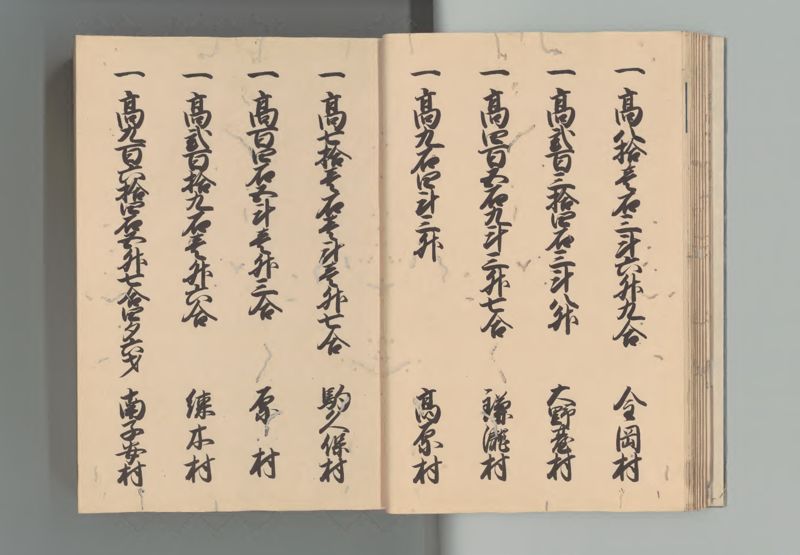 一 高八拾壱石三斗六升九合 金岡村
一 高弐百三拾四石三斗八升 大野台村
一 高四百五石九斗三升七合 鎌滝村
一 高九石四斗三升 高原村
一 高七拾壱石壱斗壱升七合 駒久保村
一 高百四石五斗壱升三合 原村
一 高弐百拾九石壱升六合 練木村
一 高九百六拾四石五升七合四夕六才 南子安村